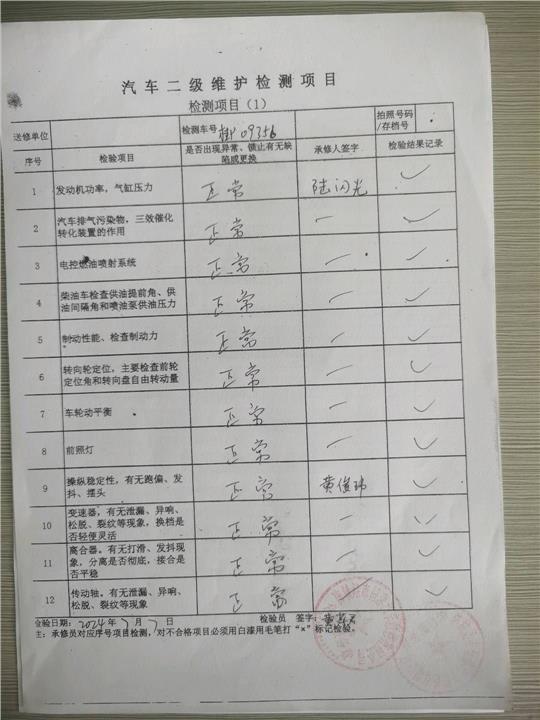 汽车二级维护检测项目
检测项目（1）
送修单位 检测车号 09356 拍照号码/存档号
序号 检验项目 是否出现异常、锁止有无缺陷或更换 承修人签字 检验结果记录
1 发动机功率，气缸压力 正常 陆闪光 ✓
2 汽车排气污染物，三效催化
转化装置的作用 正常 一 ✓
3 电控燃油喷射系统 正常 一 ✓
4 柴油车检查供油提前角、供
油间隔角和喷油泵供油压力 正常 一 ✓
5 制动性能、检查制动力 正常 一 ✓
6 转向轮定位，主要检查前轮
定位角和转向盘自由转动量 正常 一 ✓
7 车轮动平衡 正常 一 ✓
8 前照灯 正常 一 ✓
9 操纵稳定性，有无跑偏、发
抖、摆头 正常 黄俊玮 ✓
10 变速器，有无泄漏、异响、
松脱、裂纹等现象，换档是
否轻便灵活 正常 一 ✓
11 离合器。有无打滑、发抖现
象，分离是否彻底，接合是
否平稳 正常 一 ✓
12 传动轴，有无泄漏、异响、
松脱、裂纹等现象 正常 一 ✓
检验日期：2024年7月7日 检验员 签字：
主：承修员对应序号项目检测，对不合格项目必须用白漆用毛笔打“×”标记检验。